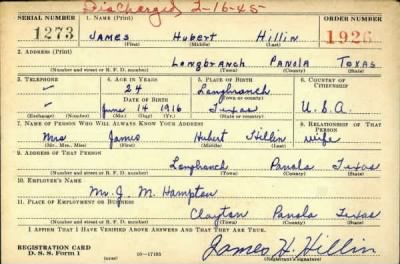 Discharged 2-16-45
SERIAL NUMBER 1. NAME (Print) ORDER NUMBER
1273 JAMES Hubert Hillin 1926
(First) (Middle) (Last)
2. ADDRESS (Print)
Longbranch Panola Texas
(Number and street or R. F. D. number) (Town) (County) (State)
3. TELEPHONE 4. AGE IN YEARS 5. PLACE OF BIRTH 6. COUNTRY OF CITIZENSHIP
— 24 Longbranch
DATE OF BIRTH (Town or county)
— June 14 1916 Texas U.S.A.
(Exchange) (Number) (Mo.) (Day) (Yr.) (State or country)
7. NAME OF PERSON WHO WILL ALWAYS KNOW YOUR ADDRESS 8. RELATIONSHIP OF THAT PERSON
Mrs James Hubert Hillin wife
(Mr., Mrs., Miss) (First) (Middle) (Last)
9. ADDRESS OF THAT PERSON
Longbranch Panola Texas
(Number and street or R. F. D. number) (Town) (County) (State)
10. EMPLOYER'S NAME
Mr. J. M. Hampton
11. PLACE OF EMPLOYMENT OR BUSINESS
Clayton Panola Texas
(Number and street or R. F. D. number) (Town) (County) (State)
I AFFIRM THAT I HAVE VERIFIED ABOVE ANSWERS AND THAT THEY ARE TRUE.
REGISTRATION CARD
D. S. S. Form 1 (over) 16—17105 James H. Hillin
(Registrant's signature)